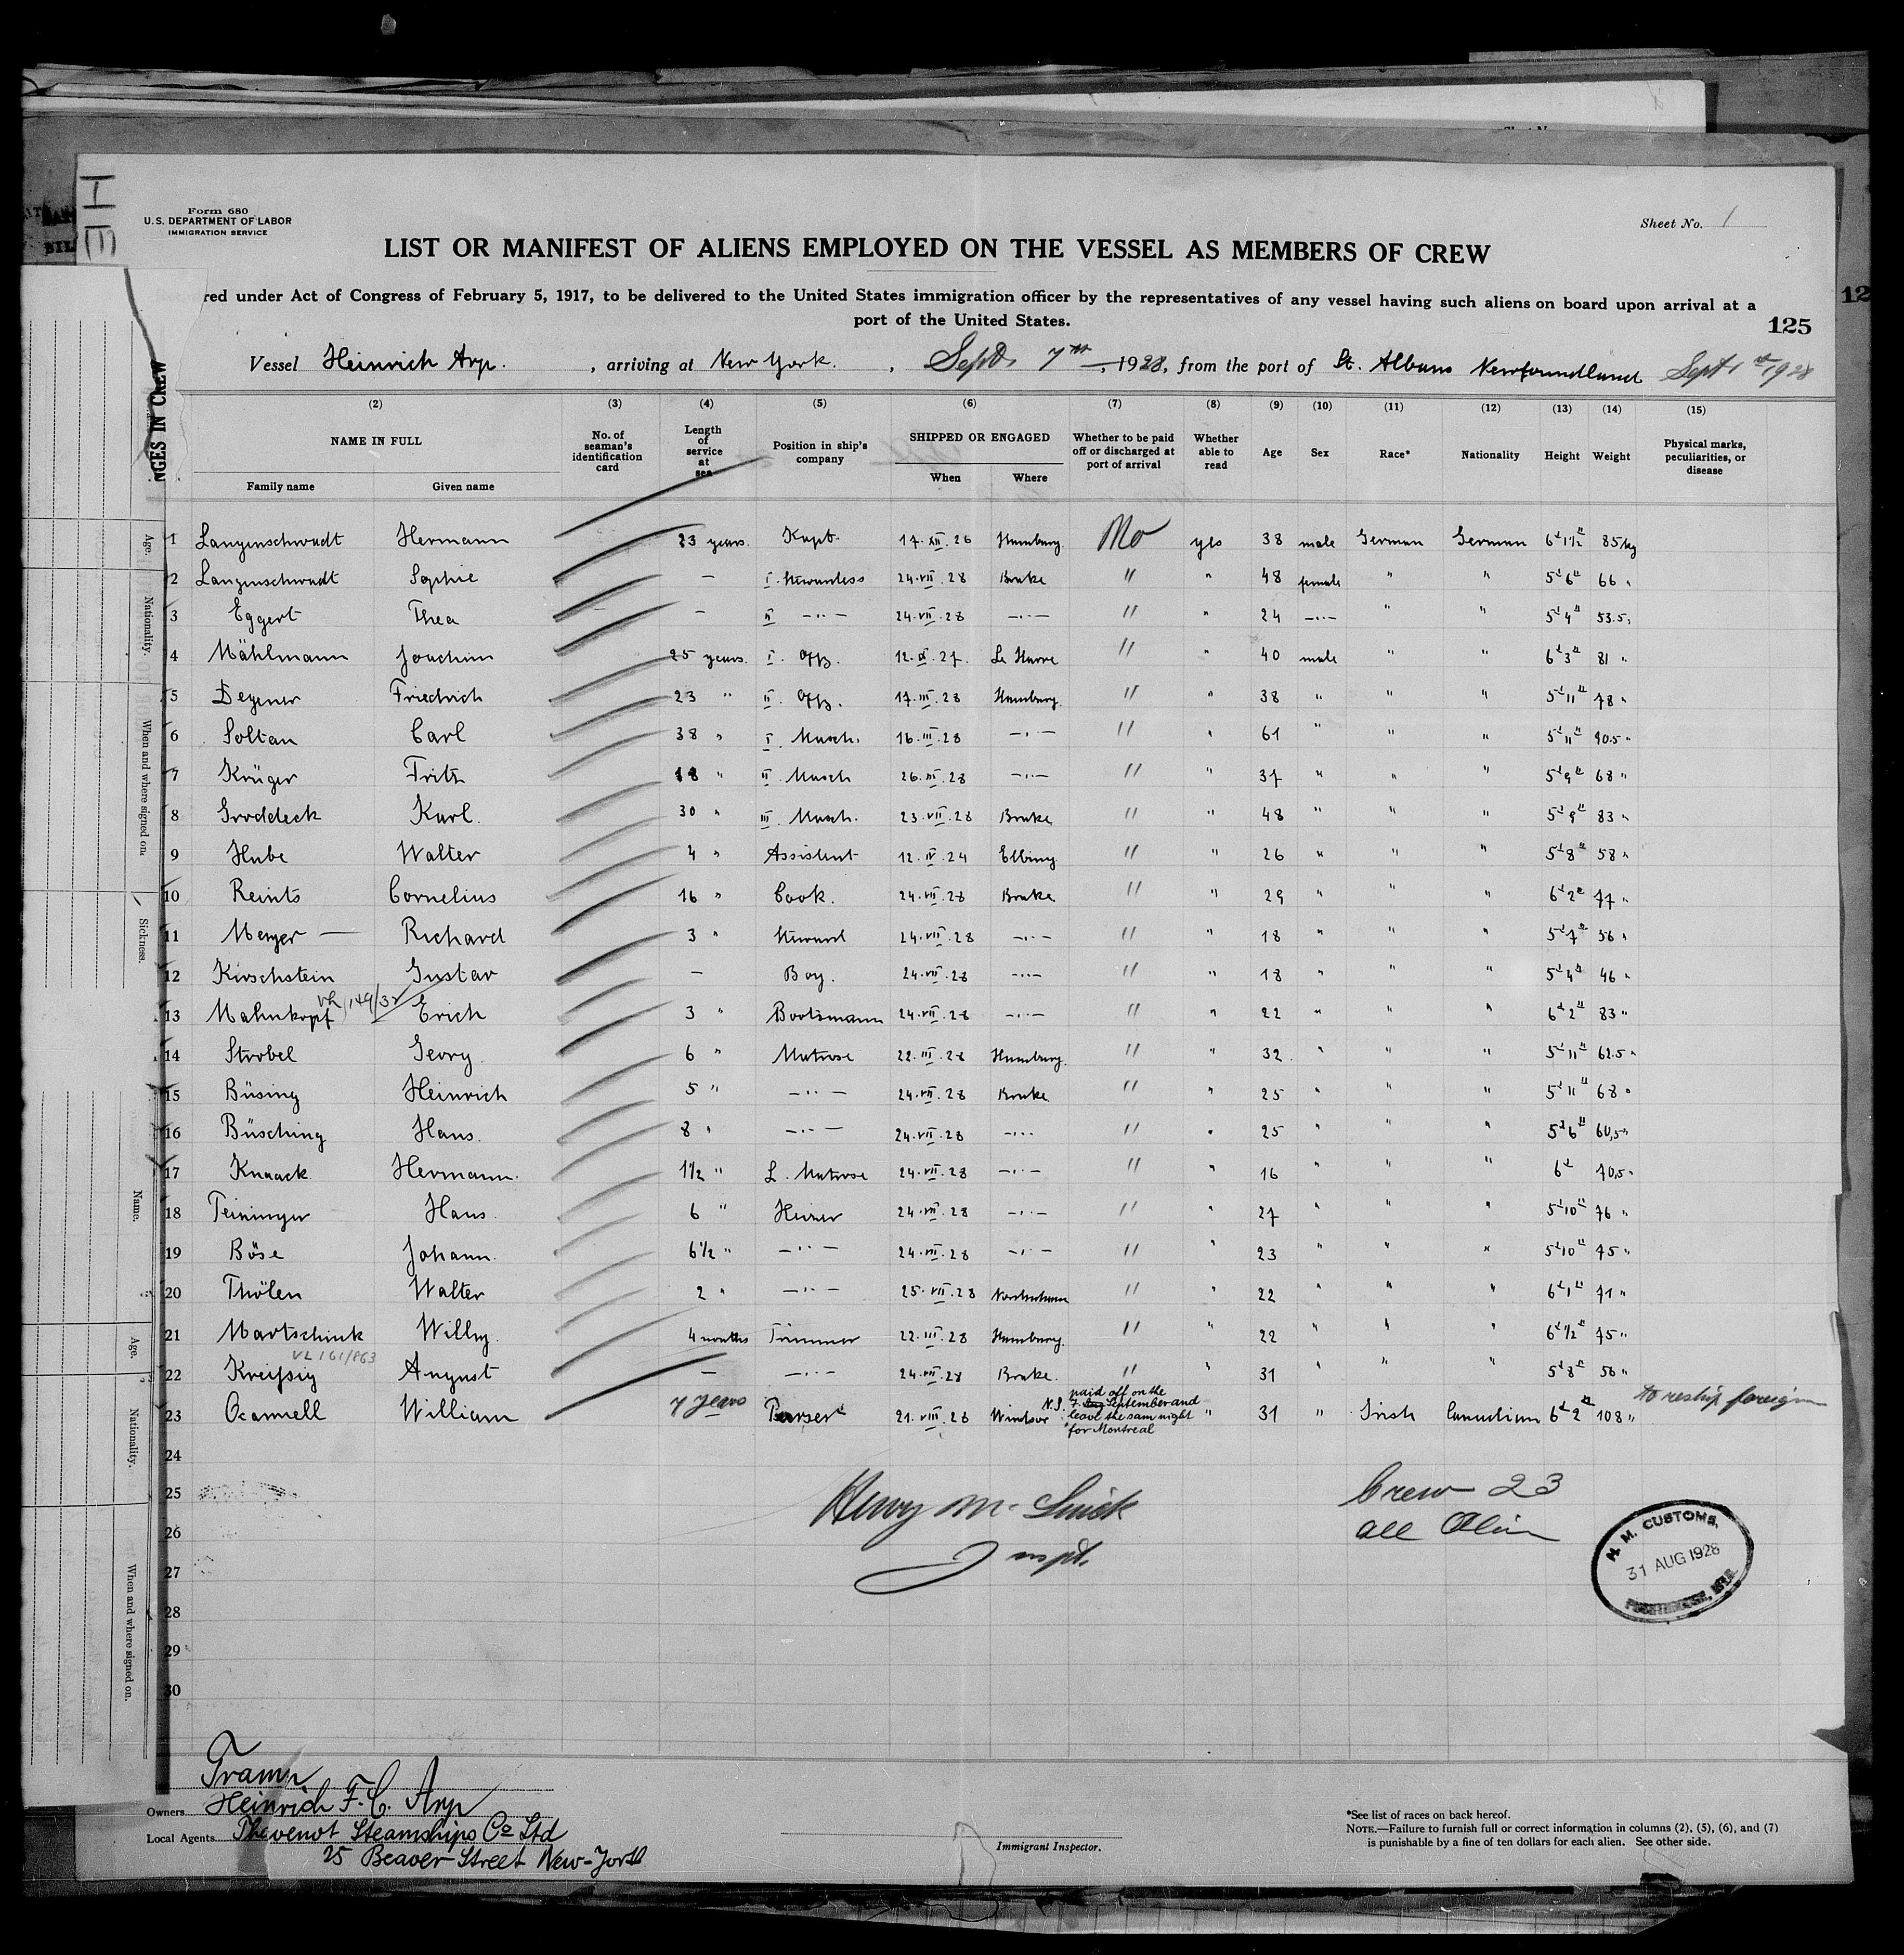 Form 680
U. S. DEPARTMENT OF LABOR
IMMIGRATION SERVICE
Sheet No. 1
LIST OR MANIFEST OF ALIENS EMPLOYED ON THE VESSEL AS MEMBERS OF CREW
red under Act of Congress of February 5, 1917, to be delivered to the United States immigration officer by the representatives of any vessel having such aliens on board upon arrival at a
port of the United States.
125
Vessel Heinrich Arp. , arriving at New York. , Sept. 7th, 1928, from the port of St. Albans Newfoundland Sept 1st 1928
(2) (3) (4) (5) (6) (7) (8) (9) (10) (11) (12) (13) (14) (15)
NAME IN FULL No. of seaman's identification card Length of service at sea Position in ship's company SHIPPED OR ENGAGED Whether to be paid off or discharged at port of arrival Whether able to read Age Sex Race* Nationality Height Weight Physical marks, peculiarities, or disease
Family name Given name When Where
1 Langenschwadt Hermann 23 years. Kapt. 17.XII.26 Hamburg. No yes 38 male German German 6' 1½" 85 kg
2 Langenschwadt Sophie — I. Stewardess 24.VII.28 Brake " " 48 female " " 5' 6" 66 "
3 Eggert Thea — II —··— 24.VII.28 —··— " " 24 —··— " " 5' 4" 53.5 "
4 Mählmann Joachim 25 years. I. Offz. 12.XI.27. Le Havre " " 40 male " " 6' 3" 81 "
5 Degener Friedrich 23 " II. Offz. 17.III.28 Hamburg. " " 38 " " " 5' 11" 78 "
6 Soltau Carl 38 " I. Masch. 16.III.28 —··— " " 61 " " " 5' 11" 90.5 "
7 Krüger Fritz 18 " II. Masch 26.III.28 —··— " " 37 " " " 5' 9" 68 "
8 Groddeck Karl. 30 " III. Masch. 23.VII.28 Brake " " 48 " " " 5' 9" 83 "
9 Hube Walter 4 " Assistent 12.IV.24 Elbing " " 26 " " " 5' 8" 58 "
10 Reints Cornelius 16 " Cook. 24.VII.28 Brake " " 29 " " " 6' 2" 77 "
11 Meyer — Richard 3 " Steward 24.VII.28 —··— " " 18 " " " 5' 7" 56 "
12 Kirschstein Gustav — Boy. 24.VII.28 —··— " " 18 " " " 5' 4" 46 "
13 Mahnkopf Erich 3 " Bootsmann 24.VII.28 —··— " " 22 " " " 6' 2" 83 "
14 Strobel Georg. 6 " Matrose 22.III.28 Hamburg. " " 32 " " " 5' 11" 62.5 "
15 Büsing Heinrich 5 " —··— 24.VII.28 Brake " " 25 " " " 5' 11" 68 "
16 Büsching Hans. 8 " —··— 24.VII.28 —··— " " 25 " " " 5' 6" 60,5 "
17 Knaack Hermann. 1½ " L. Matrose 24.VII.28 —··— " " 16 " " " 6' 70,5 "
18 Teininger Hans. 6 " Heizer 24.VII.28 —··— " " 27 " " " 5' 10" 76 "
19 Böse Johann. 6½ " —··— 24.VII.28 —··— " " 23 " " " 5' 10" 75 "
20 Thölen Walter 2 " —··— 25.VII.28 " " 22 " " " 6' 1" 71 "
21 Martschink Willy. 4 months Trimmer 22.III.28 Hamburg. " " 22 " " " 6' ½" 75 "
VL 161/863
22 Kreißig August — —··— 24.VII.28 Brake. " " 31 " " " 5' 8" 56 "
23 Oconnell William 7 years Purser 21.VIII.28 Windsor N.S. paid off on the 7. September and leave the sam night for Montreal " 31 " Irish Canadian 6' 2" 108 " to reship foreign
24
25
26
27
28
29
30
Henry
Inspt.
Crew 23
all Alien
H. M. CUSTOMS.
31 AUG 1928
Tramp.
Owners Heinrich F. C. Arp
Local Agents Thevenot Steamships Co Ltd
25 Beaver Street New-York
Immigrant Inspector.
*See list of races on back hereof.
NOTE.—Failure to furnish full or correct information in columns (2), (5), (6), and (7)
is punishable by a fine of ten dollars for each alien. See other side.
NGES IN CREW
Age.
Nationality.
When and where signed on:
Sickness.
Name.
Age.
Nationality.
When and where signed on.
12